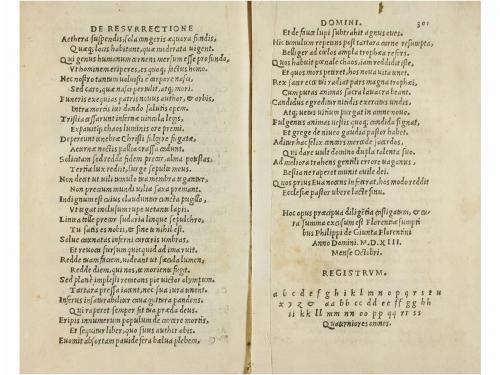 DE RESURRECTIONE
Aethera suspendis, sola congeris aequora fundis,
Quæq; locis habitant, quæ moderata uigent.
Qui genus humanum cernens mersum esse profundo,
Vt hominem eriperes, es quoq; factus homo.
Nec nostro tantum uoluisti e corpore nasci,
Sed caro, quæ nasci pertulit, atq; mori.
Funeris exequias patris nouus author, & orbis,
Intra mortis iter dando salutis opem.
Tristia cessarunt infernæ uincula legis,
Expauitq; chaos luminis ore premi.
Depereunt tenebræ Christi fulgore fugatæ,
Aeternæ noctis pallia crassa cadunt.
Solicitam sed redde fidem precor, alma potestas,
Tertia lux rediit, surge sepulte meus.
Non decet ut uili tumulo tua membra tegantur,
Non precium mundi uilia saxa premant.
Indignum est cuius clauduntur cuncta pugillo,
Vt tegat inclusum rupe uetante lapis.
Lintea tolle precor sudaria linque sepulchro,
Tu satis es nobis, & sine te nihil est.
Solue catenatas inferni carceris umbras,
Et reuoca sursum quicquid ad ima ruit.
Redde tuam faciem, uideant ut sæcula lumen,
Redde diem, qui nos, te moriente fugit.
Sed plane implesti remeans pie uictor olympum,
Tartara pressa iacent, nec sua iura tenent.
Inferus insaturabiliter caua guttura pandens,
Qui raperet semper fit tua præda deus.
Eripis innumerum populum de carcere mortis,
Et sequitur liber, quo suus author abit.
Euomit absortam pauide fera belua plebem,
DOMINI. 301
Et de fauce lupi subtrahit agnus oues.
Hic tumulum repetens post tartara carne resumpta,
Belliger ad cælos ampla trophæa refers.
Quos habuit pœnale chaos, iam reddidit iste,
Et quos mors peteret, hos noua uita tenet.
Rex sacer ecce tui radiat pars magna trophæi,
Cum puras animas sacra lauacra beant.
Candidus egreditur nitidis exercitus undis,
Atq; uetus uitium purgat in amne nouo.
Fulgentes animas uestis quoq; candida signat,
Et grege de niueo gaudia pastor habet.
Additur hac felix consors mercede sacerdos,
Qui dare uult domino dupla talenta suo.
Ad meliora trahens gentili errore uagantes,
Bestia ne raperet munit ouile dei.
Quos prius Eua nocens infecerat, hos modo reddit
Ecclesiæ pastor ubere lacte sinu.
Hoc opus præcipua diligentia castigatum, & cu
ra summa excusum est Florentiæ sumpti
bus Philippi de Giunta Florentini
Anno Domini. M.D.XIII.
Mense Octobri.
REGISTRVM.
a b c d e f g h i k l m n o p q r s t u
x y z & aa bb cc dd ee ff gg hh
ii kk ll mm nn oo pp qq rr ss
Quaterniones omnes.